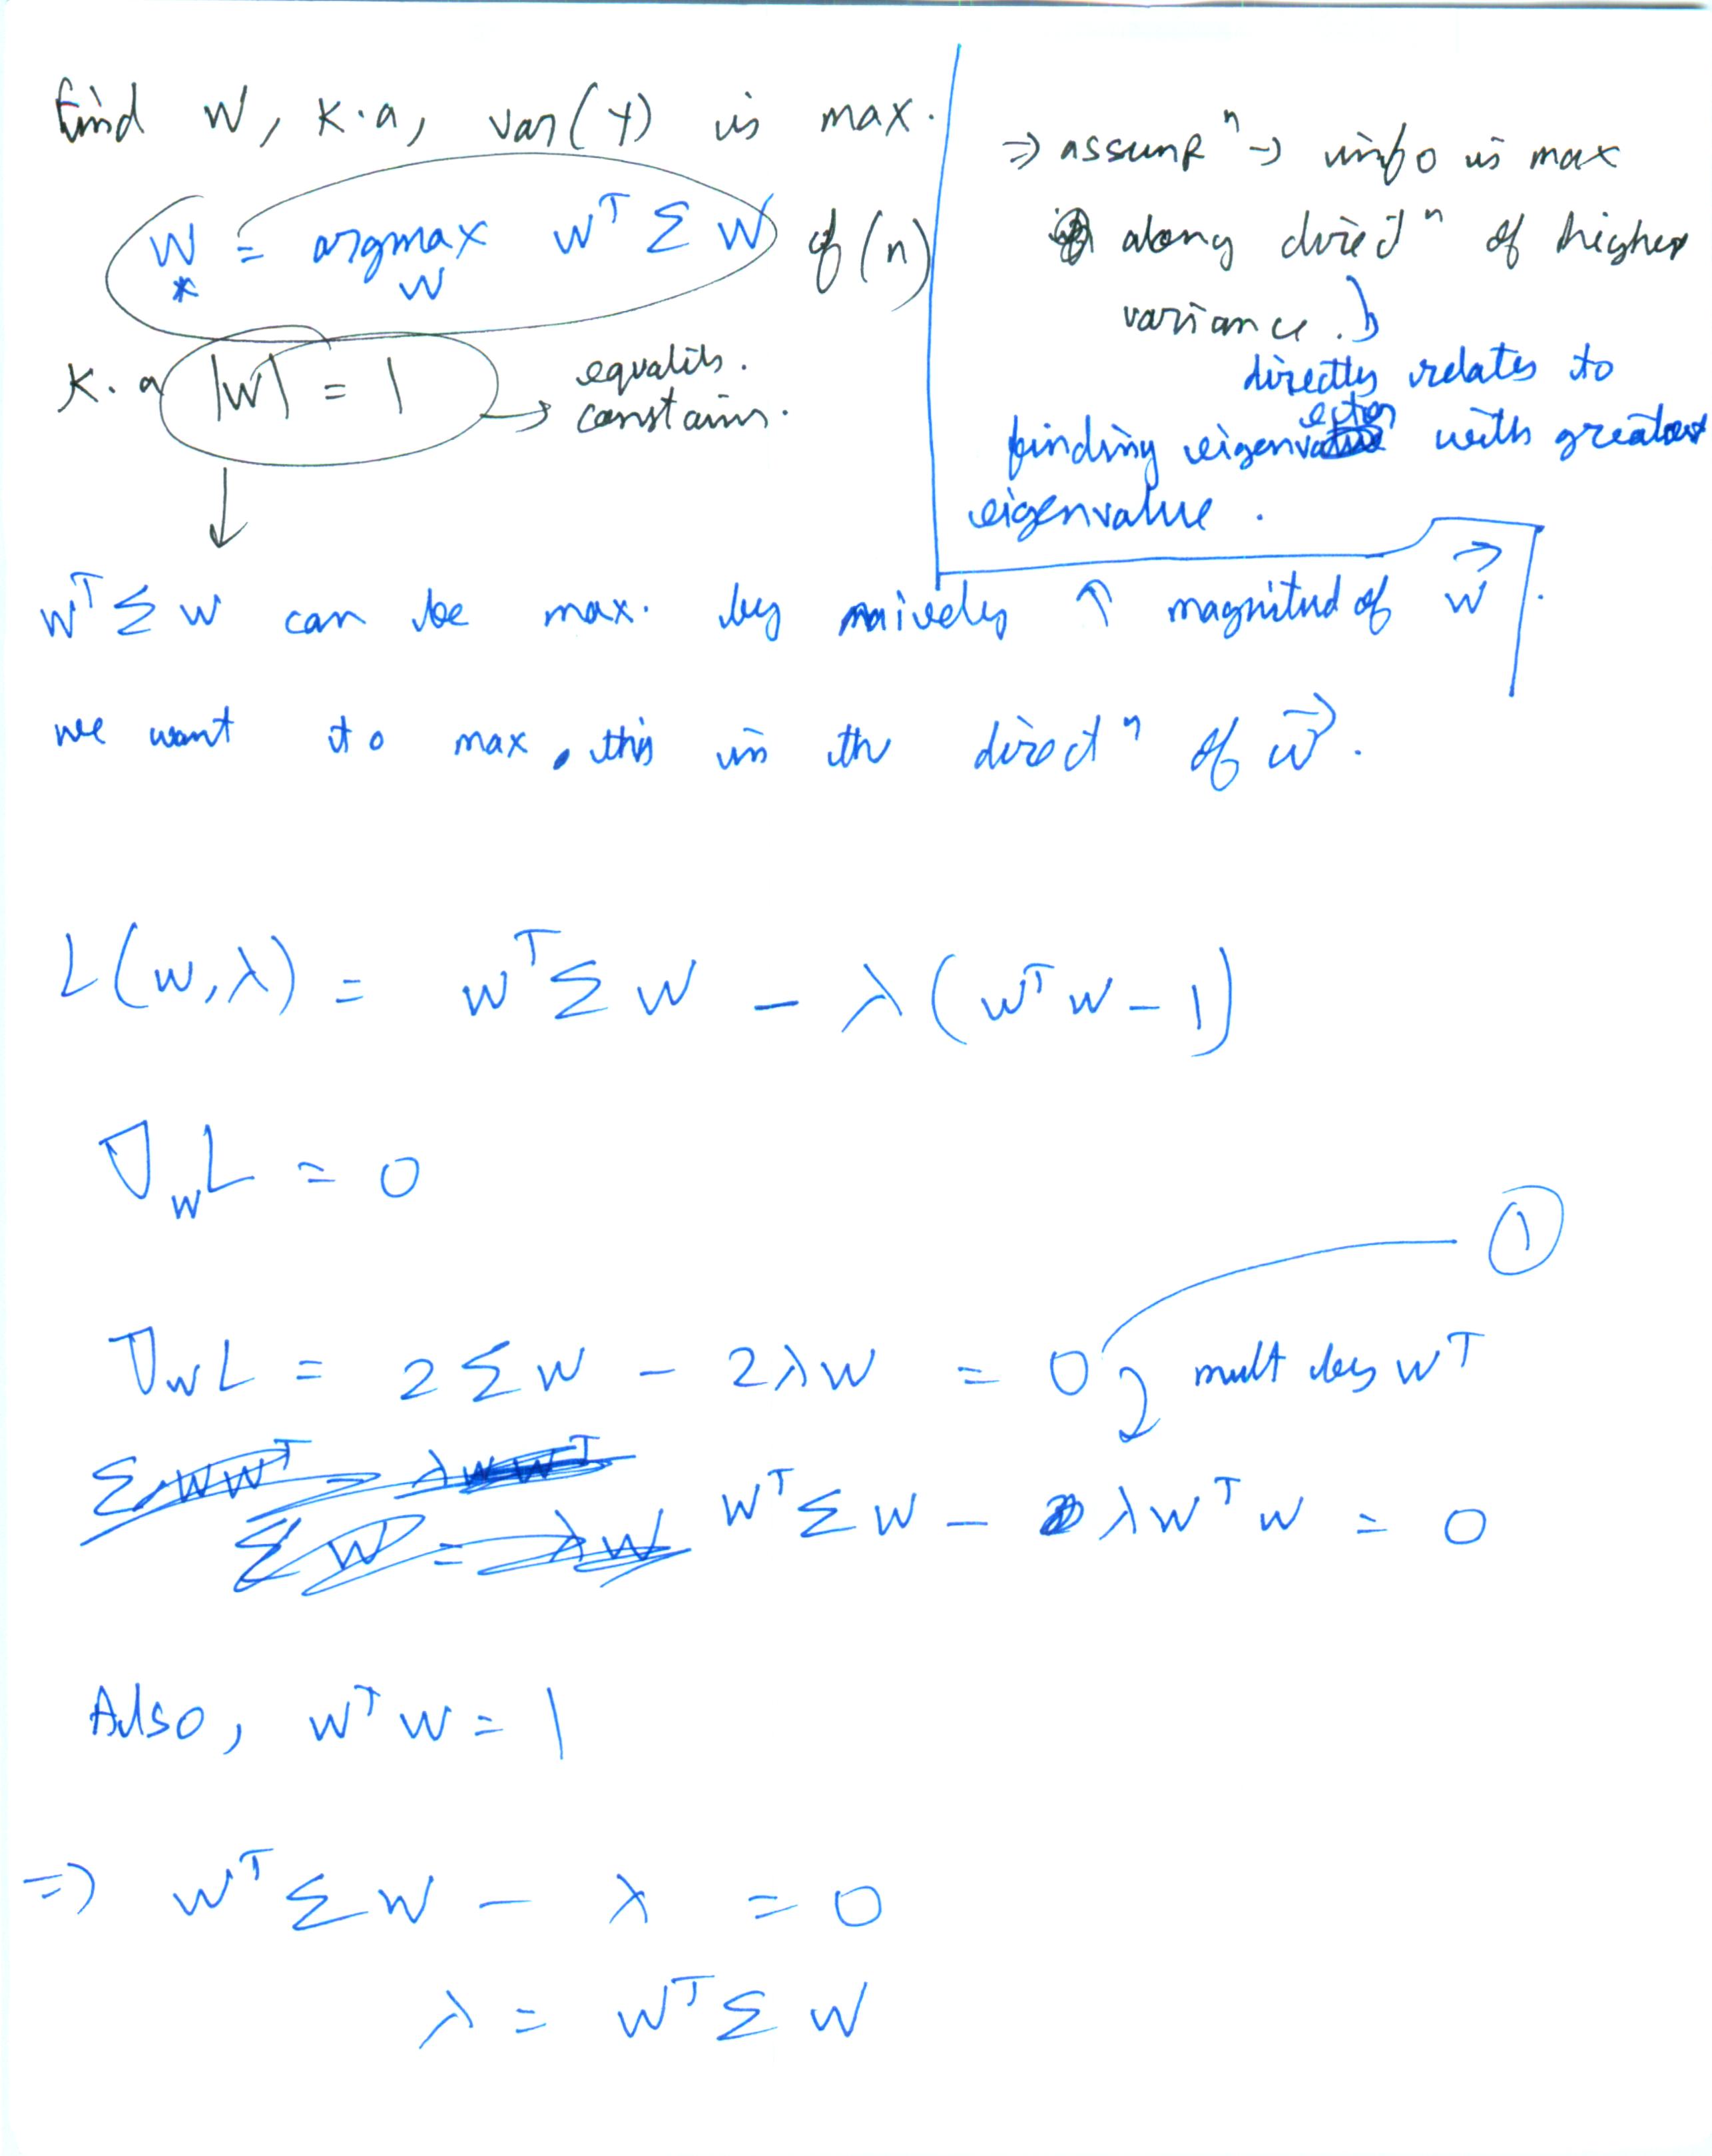 find W, K.a, var(Y) is max.
W* = argmax_W W^T Σ W of (n)
K.a |W| = 1 → equality. constain.
⇒ assumpⁿ → info is max
along directⁿ of higher
variance.
directly relates to
finding eigenvector with greatest
eigenvalue.
W^T Σ W can be max. by naively ↑ magnitud of w⃗.
we want to max. this in th directⁿ of w⃗.
L(W,λ) = W^T Σ W − λ(W^T W − 1)
∇_W L = 0
①
∇_W L = 2ΣW − 2λW = 0 mult by W^T
W^T Σ W − λ W^T W = 0
Also, W^T W = 1
⇒ W^T Σ W − λ = 0
λ = W^T Σ W